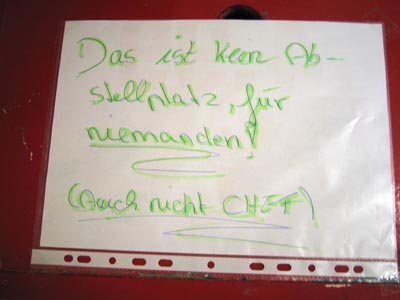 Das ist kein Ab-
stellplatz, für
niemanden!
(Auch nicht CHEF)